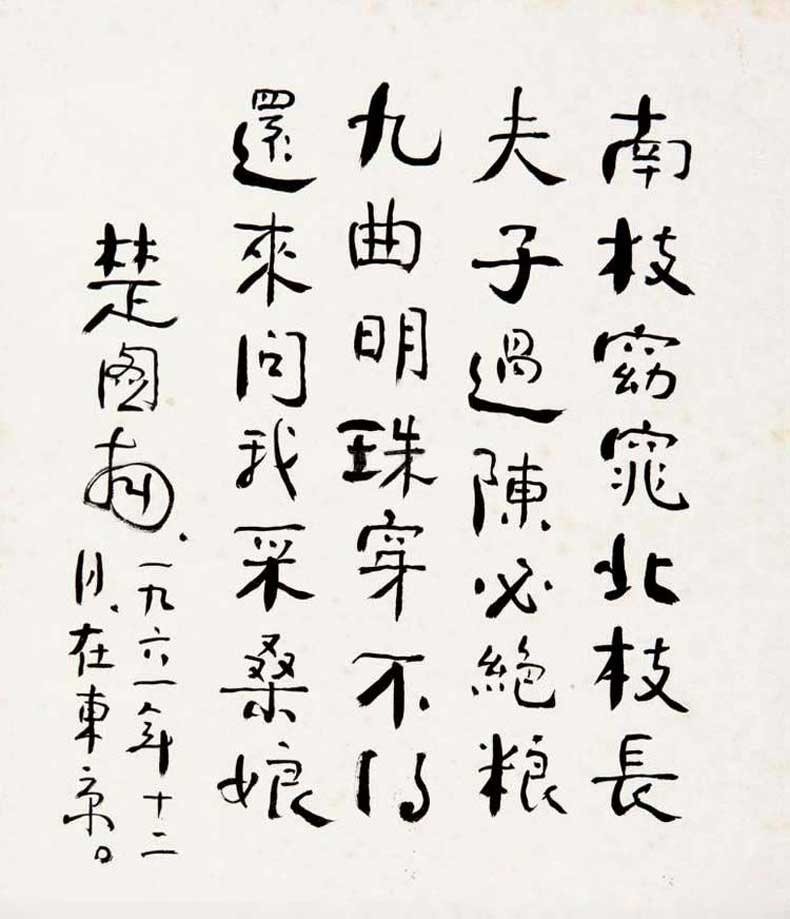 南枝窈窕北枝長
夫子過陳必絕粮
九曲明珠穿不得
還來問我采桑娘
楚图南、一九六一年十二
月、在東京。